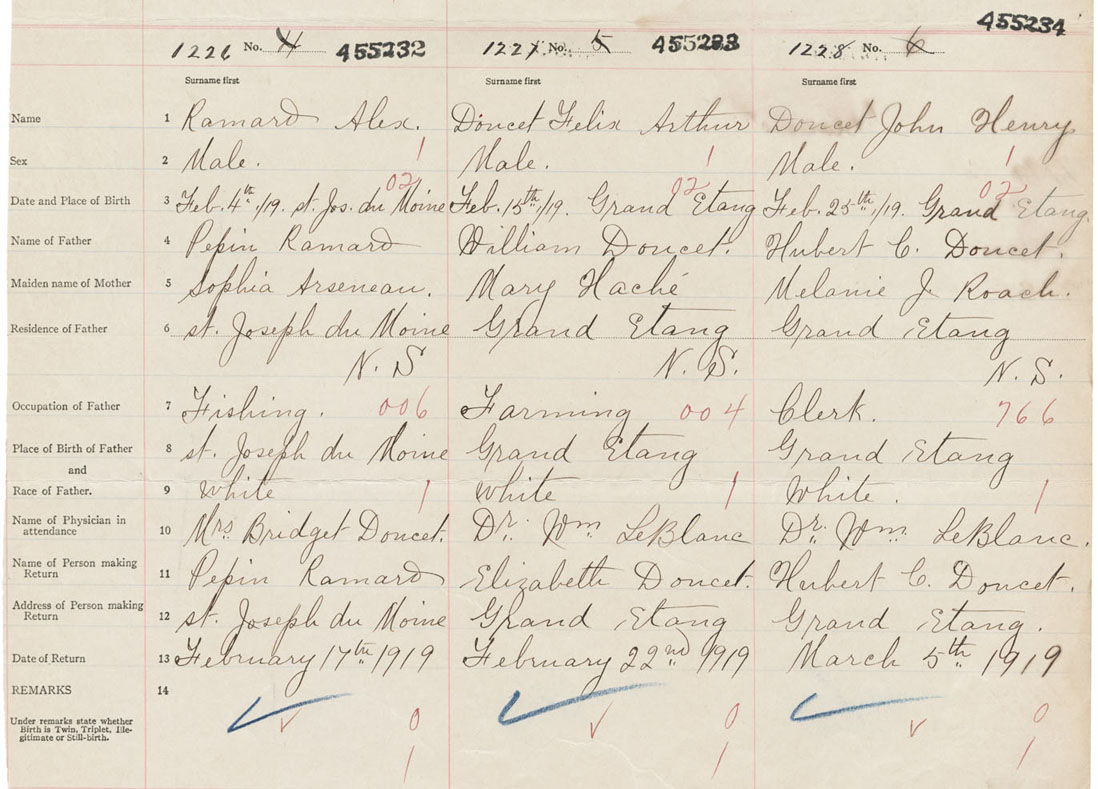 455234
1226 No. 4 455232 1227 No. 5 455233 1228 No. 6
Surname first Surname first Surname first
Name 1 Ramard Alex. Doucet Felix Arthur Doucet John Henry
Sex 2 Male. 1 Male. 1 Male. 1
02 02 02
Date and Place of Birth 3 Feb. 4th/19. St. Jos. du Moine Feb. 15th/19. Grand Etang Feb. 25th/19. Grand Etang.
Name of Father 4 Pepin Ramard William Doucet. Hubert C. Doucet.
Maiden name of Mother 5 Sophia Arseneau. Mary Haché Melanie J. Roach.
Residence of Father 6 St. Joseph du Moine Grand Etang Grand Etang
N. S N. S. N. S.
Occupation of Father 7 Fishing. 006 Farming 004 Clerk. 766
Place of Birth of Father 8 St. Joseph du Moine Grand Etang Grand Etang
and
Race of Father. 9 White 1 White 1 White. 1
Name of Physician in
attendance 10 Mrs. Bridget Doucet. Dr. Wm LeBlanc Dr. Wm. LeBlanc.
Name of Person making
Return 11 Pepin Ramard Elizabeth Doucet. Hubert C. Doucet.
Address of Person making
Return 12 St. Joseph du Moine Grand Etang Grand Etang.
Date of Return 13 February 17th 1919 February 22nd 1919 March 5th 1919
REMARKS 14
Under remarks state whether 0 0 0
Birth is Twin, Triplet, Ille-
gitimate or Still-birth.
1 1 1